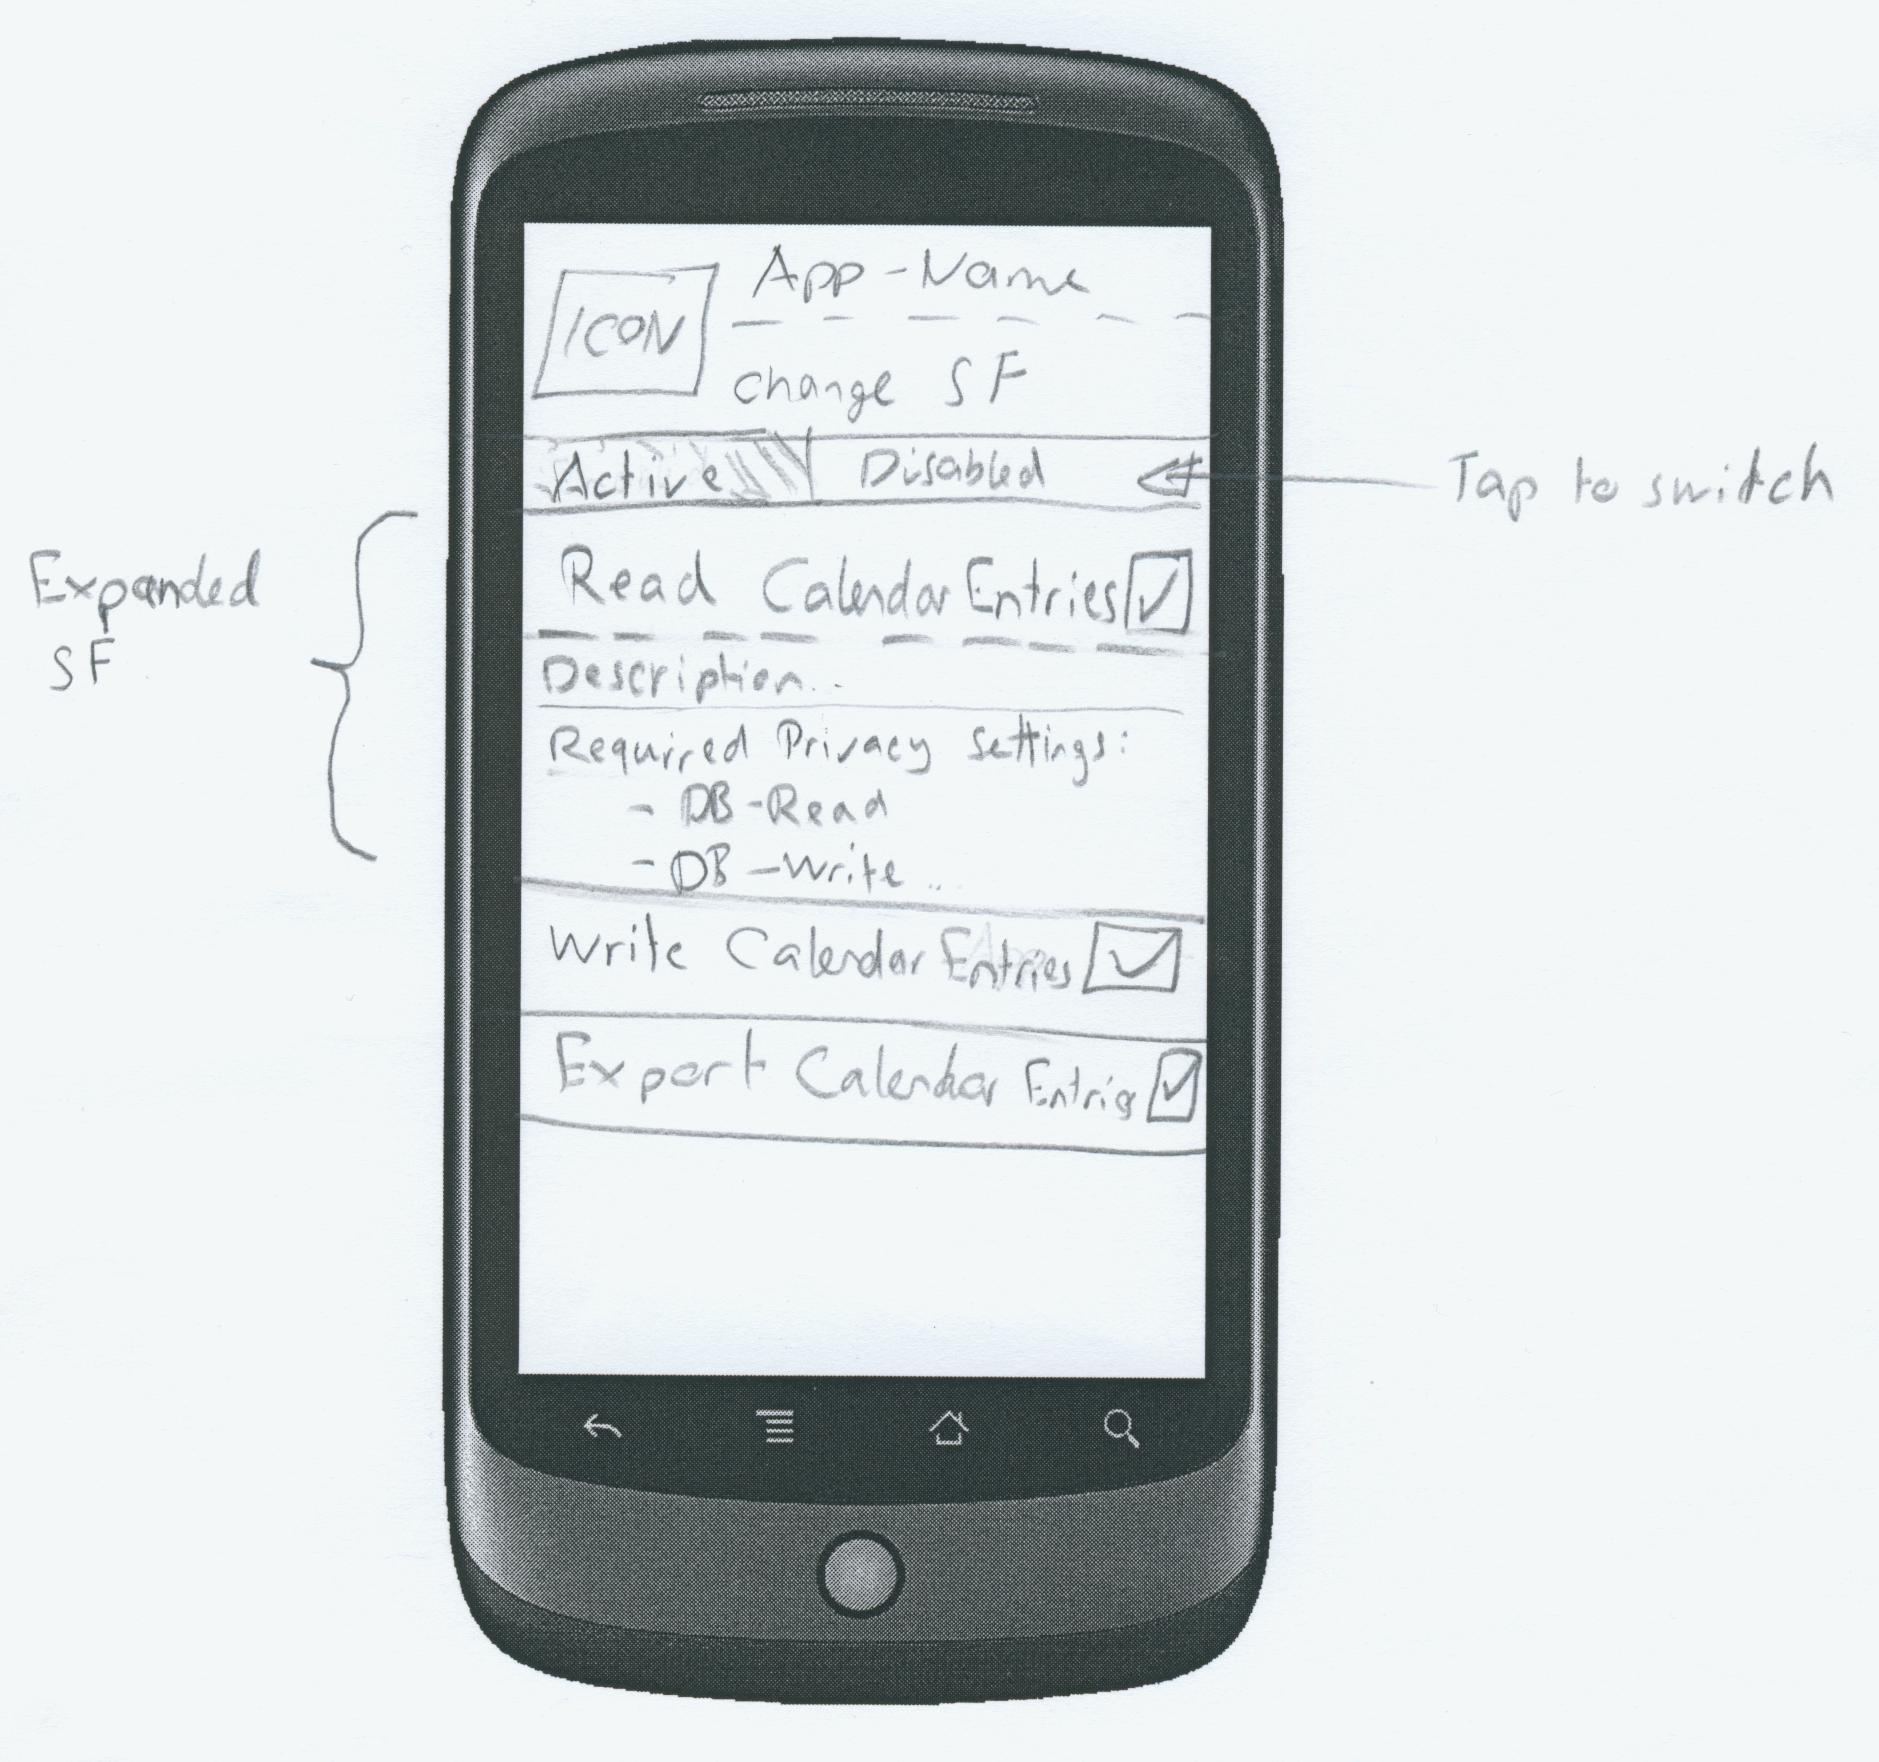 App-Name
ICON
change SF
Active Disabled
Tap to switch
Expanded
SF
Read Calendar Entries
Description...
Required Privacy settings:
- DB-Read
- DB-Write...
Write Calendar Entries
Export Calendar Entries